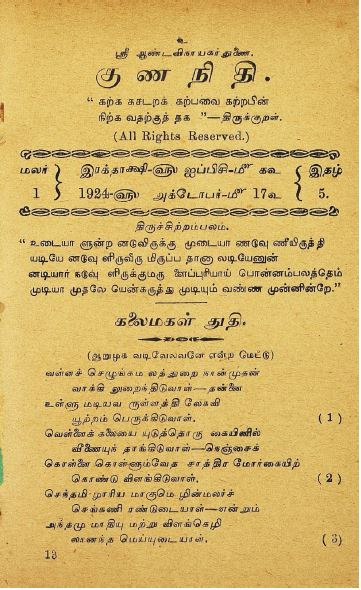 உ
ஸ்ரீ ஆண்டவிநாயகர்துணை.
குணநிதி.
“ கற்க கசடறக் கற்பவை கற்றபின்
நிற்க வதற்குத் தக ”—திருக்குறள்.
(All Rights Reserved.)
மலர் இரக்தாக்ஷி-ஹு ஐப்பிசி-மீ கஉ இதழ்
1 1924-ஹு அக்டோபர்-மீ 17உ 5.
திருச்சிற்றம்பலம்.
“ உடையா ளுன்ற னடுவிருக்கு முடையா ணடுவு ணீயிருத்தி
யடியே னடுவு ளிருவிரு மிருப்ப தானா லடியேனுன்
னடியார் நடுவு ளிருக்குமரு ளைப்புரியாய் பொன்னம்பலத்தெம்
முடியா முதலே யென்கருத்து முடியும் வண்ண முன்னின்றே.”
கலைமகள் துதி.
(ஆறுமுக வடிவேலவனே என்ற மெட்டு)
வள்ளச் செழுங்கம லத்துறை நான்முகன்
வாக்கி லுறைந்திடுவாள்—தன்னை
உள்ளு மடியவ ருள்ளத்தி லேகலி
யூற்றம் பெருக்கிடுவாள். (1)
வெள்ளைக் கலையை யுடுத்தொரு கையினில்
வீணையுந் தாங்கிடுவாள்—நெஞ்சைக்
கொள்ளை கொள்ளும்வேத சாத்திர மோர்கையிற்
கொண்டு விளங்கிடுவாள். (2)
செந்தமி ழாரிய மாகுமெ ழின்மலர்ச்
செங்கணி ரண்டுடையாள்—என்றும்
அந்தமு மாதியு மற்று விளங்கெழி
லானந்த மெய்யுடையாள். (3)
13